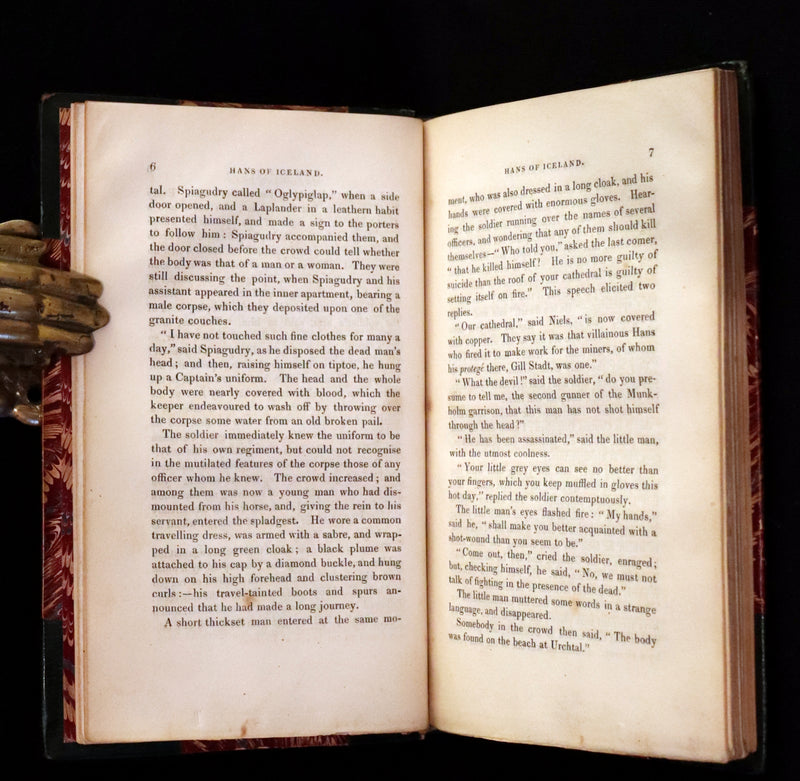 6
HANS OF ICELAND.
tal. Spiagudry called “ Oglypiglap,” when a side
door opened, and a Laplander in a leathern habit
presented himself, and made a sign to the porters
to follow him : Spiagudry accompanied them, and
the door closed before the crowd could tell whether
the body was that of a man or a woman. They were
still discussing the point, when Spiagudry and his
assistant appeared in the inner apartment, bearing a
male corpse, which they deposited upon one of the
granite couches.
“ I have not touched such fine clothes for many a
day,” said Spiagudry, as he disposed the dead man's
head ; and then, raising himself on tiptoe, he hung
up a Captain's uniform. The head and the whole
body were nearly covered with blood, which the
keeper endeavoured to wash off by throwing over
the corpse some water from an old broken pail.
The soldier immediately knew the uniform to be
that of his own regiment, but could not recognise
in the mutilated features of the corpse those of any
officer whom he knew. The crowd increased ; and
among them was now a young man who had dis-
mounted from his horse, and, giving the rein to his
servant, entered the spladgest. He wore a common
travelling dress, was armed with a sabre, and wrap-
ped in a long green cloak ; a black plume was
attached to his cap by a diamond buckle, and hung
down on his high forehead and clustering brown
curls :—his travel-tainted boots and spurs an-
nounced that he had made a long journey.
A short thickset man entered at the same mo-
7
HANS OF ICELAND.
ment, who was also dressed in a long cloak, and his
hands were covered with enormous gloves. Hear-
ing the soldier running over the names of several
officers, and wondering that any of them should kill
themselves—“ Who told you,” asked the last comer,
“ that he killed himself? He is no more guilty of
suicide than the roof of your cathedral is guilty of
setting itself on fire.” This speech elicited two
replies.
“ Our cathedral,” said Niels, “ is now covered
with copper. They say it was that villainous Hans
who fired it to make work for the miners, of whom
his protegé there, Gill Stadt, was one.”
“ What the devil !” said the soldier, “ do you pre-
sume to tell me, the second gunner of the Munk-
holm garrison, that this man has not shot himself
through the head ?”
“ He has been assassinated,” said the little man,
with the utmost coolness.
“ Your little grey eyes can see no better than
your fingers, which you keep muffled in gloves this
hot day,” replied the soldier contemptuously.
The little man's eyes flashed fire : “ My hands,”
said he, “ shall make you better acquainted with a
shot-wound than you seem to be.”
“ Come out, then,” cried the soldier, enraged ;
but, checking himself, he said, “ No, we must not
talk of fighting in the presence of the dead.”
The little man muttered some words in a strange
language, and disappeared.
Somebody in the crowd then said, “ The body
was found on the beach at Urchtal.”